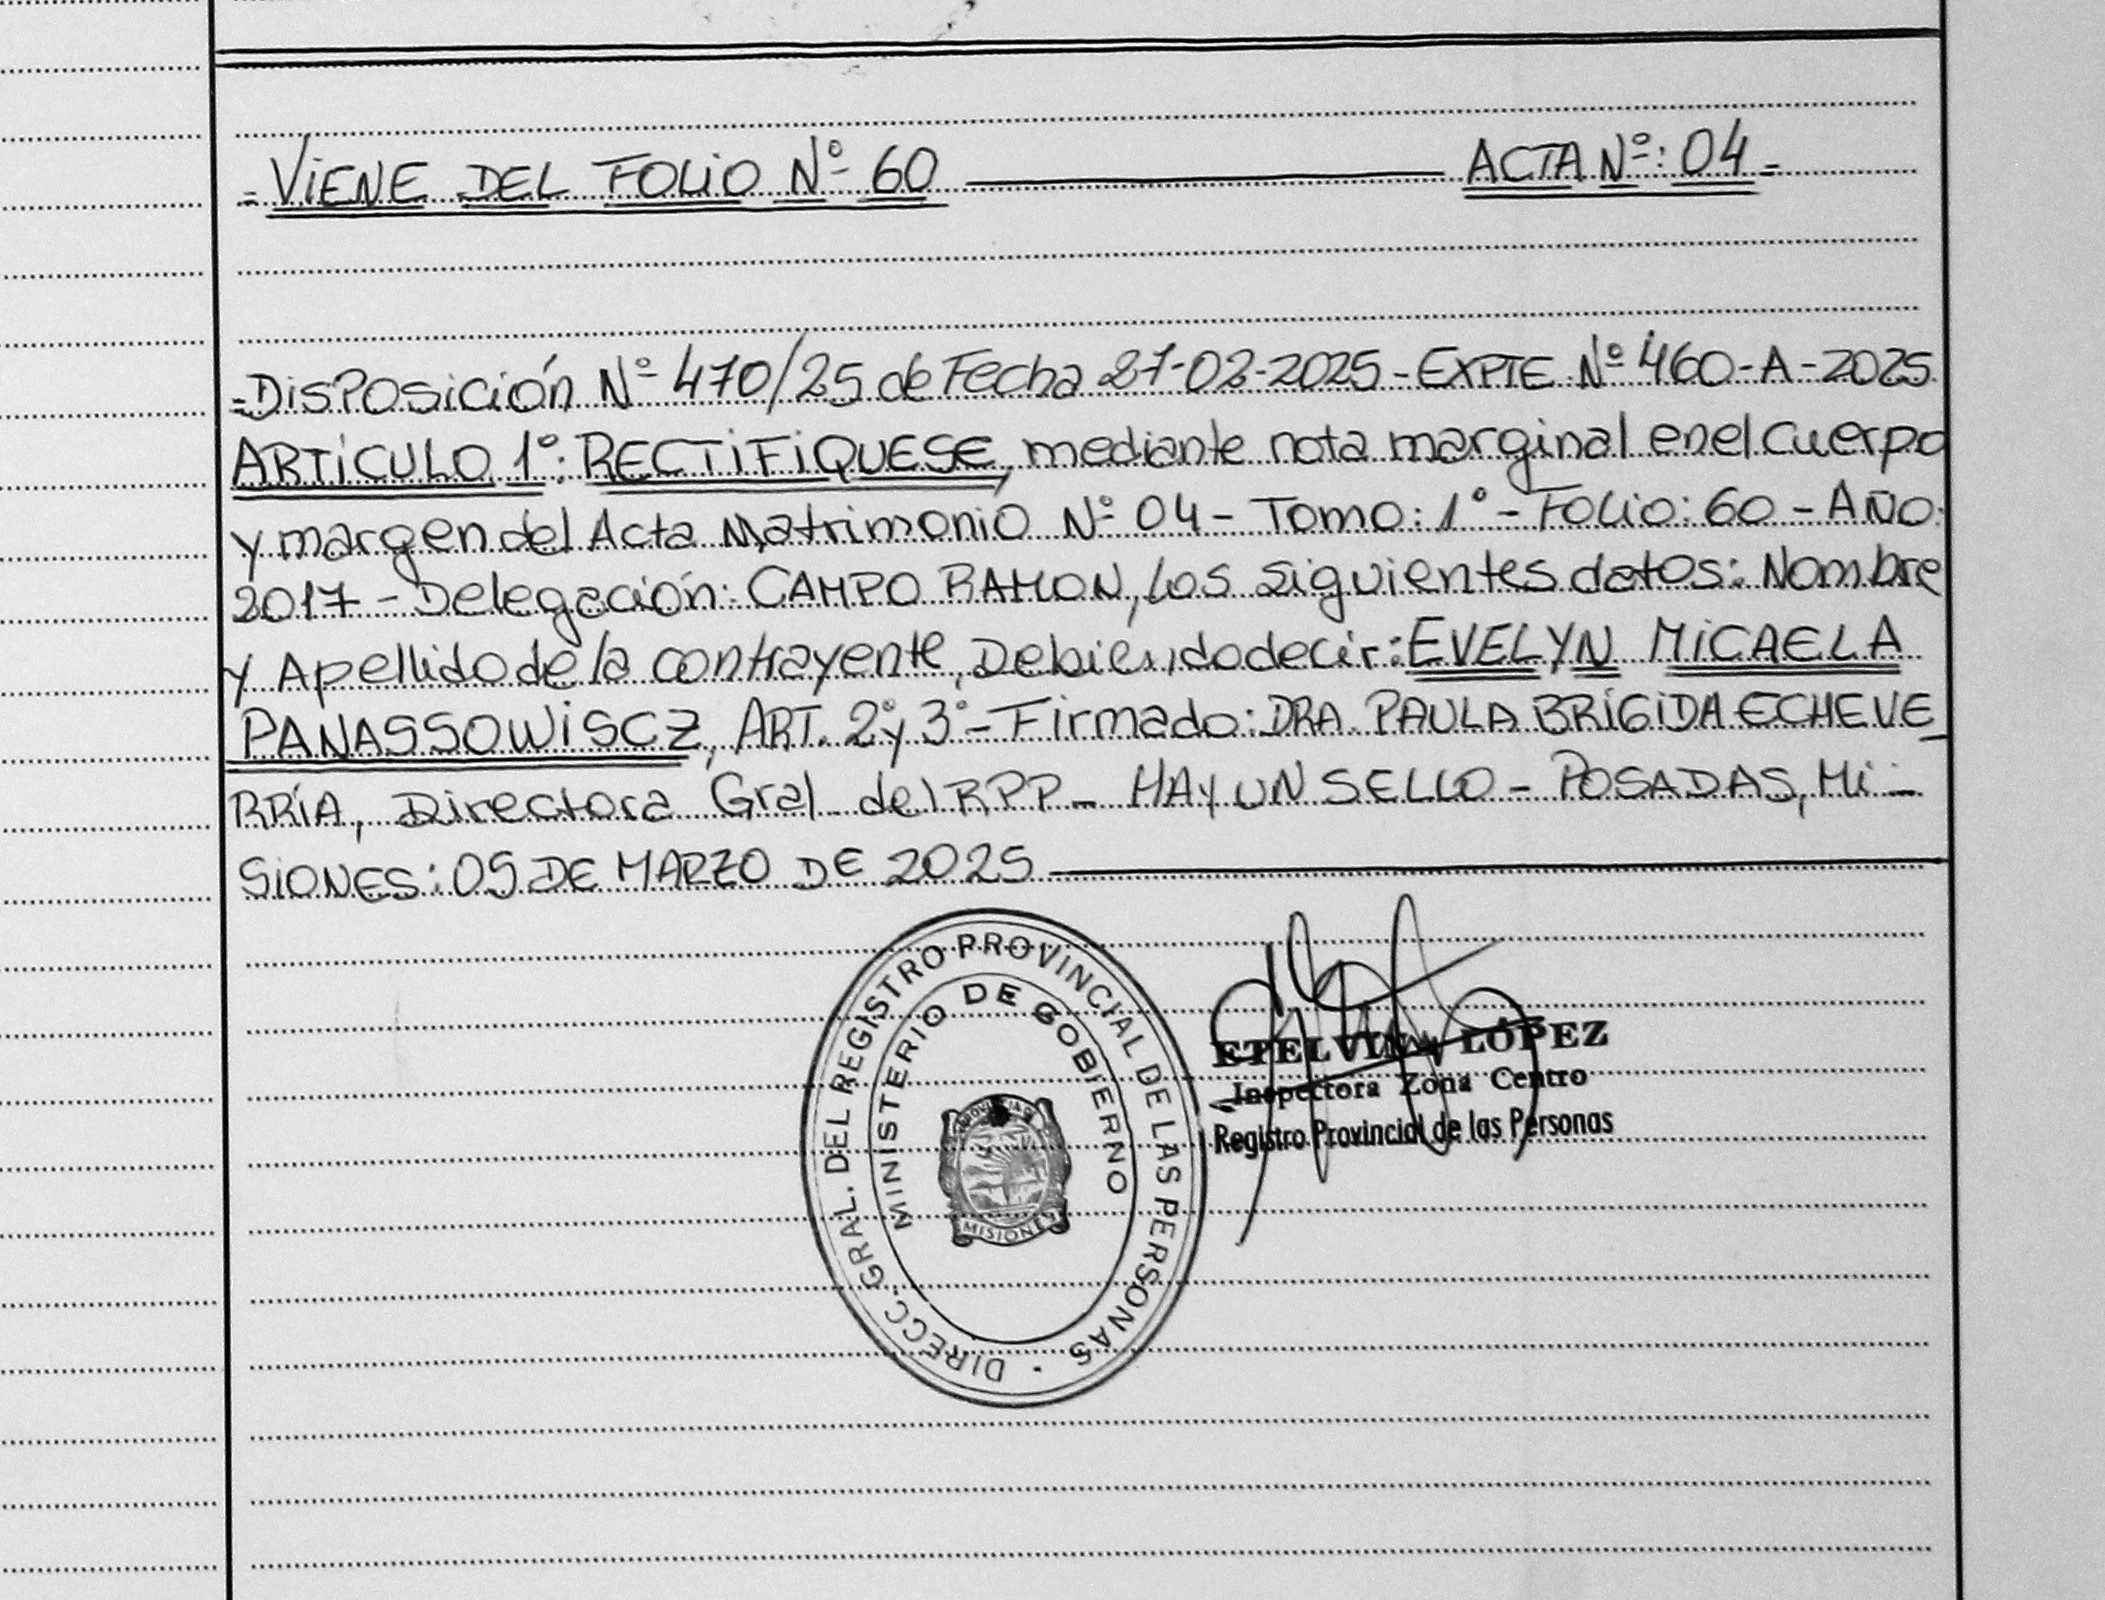 = VIENE DEL FOLIO Nº 60 ———— ACTA Nº: 04 =
=DISPOSICIÓN Nº 470/25 de Fecha 27-02-2025 - EXPTE Nº 460-A-2025
ARTICULO 1º: RECTIFIQUESE, mediante nota marginal en el cuerpo
y margen del Acta Matrimonio Nº 04 - Tomo: 1º - FOLIO: 60 - AÑO:
2017 - Delegación: CAMPO RAMON, los siguientes datos: Nombre
y Apellido de la contrayente, Debiendo decir: EVELYN MICAELA
PANASSOWISCZ, ART. 2º y 3º - Firmado: DRA. PAULA BRIGIDA ECHEVE_
RRÍA, Directora Gral del RPP - HAY UN SELLO - POSADAS, Mi -
SIONES: 05 DE MARZO DE 2025 ————
DIRECC. GRAL. DEL REGISTRO PROVINCIAL DE LAS PERSONAS
MINISTERIO DE GOBIERNO
PROVINCIA DE
MISIONES
ETELVINA LÓPEZ
Inspectora Zona Centro
Registro Provincial de las Personas